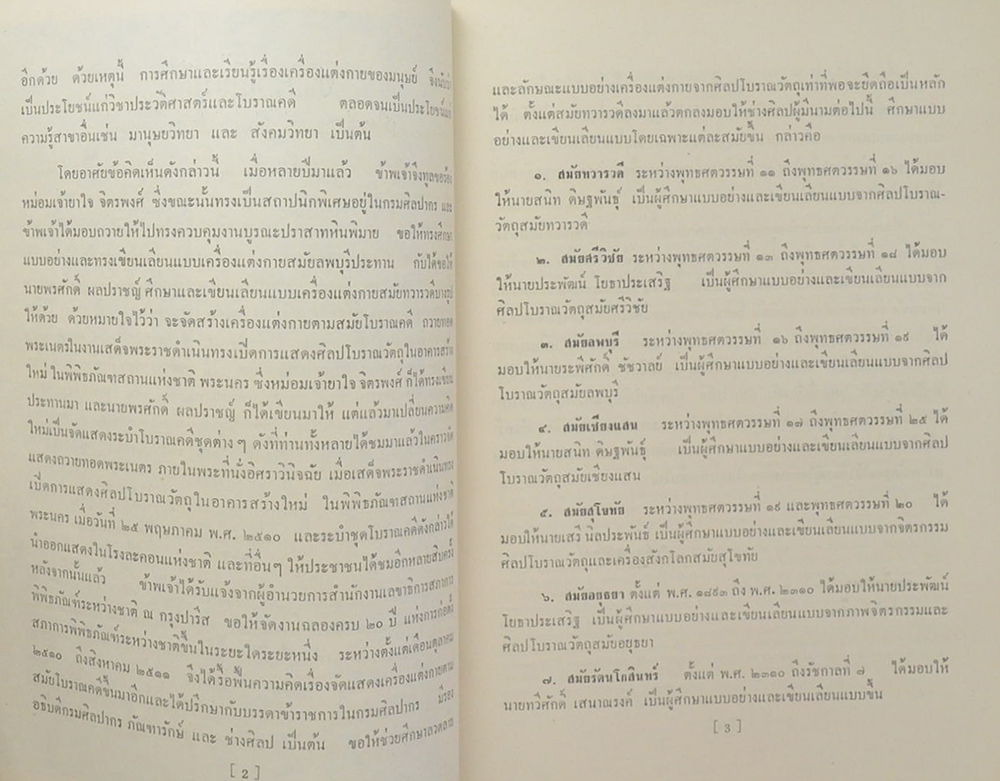 อีกด้วย ด้วยเหตุนี้ การศึกษาและเรียนรู้เรื่องเครื่องแต่งกายของมนุษย์
เป็นประโยชน์แก่วิชาประวัติศาสตร์และโบราณคดี ตลอดจนเป็นประโยชน์
ความรู้สาขาอื่นเช่น มานุษยวิทยา และ สังคมวิทยา เป็นต้น
โดยอาศัยข้อคิดเห็นดังกล่าวนี้ เมื่อหลายปีมาแล้ว ข้าพเจ้าจึงทูลขอร้อง
หม่อมเจ้ายาใจ จิตรพงศ์ ซึ่งขณะนั้นทรงเป็นสถาปนิกพิเศษอยู่ในกรมศิลปากร และ
ข้าพเจ้าได้มอบถวายให้ไปทรงควบคุมงานบูรณะปราสาทหินพิมาย ขอให้ทรงศึกษา
แบบอย่างและทรงเขียนเลียนแบบเครื่องแต่งกายสมัยลพบุรีประทาน กับได้ขอให้
นายพรศักดิ์ ผลปราชญ์ ศึกษาและเขียนเลียนแบบเครื่องแต่งกายสมัยทวารวดีบางรูป
ให้ด้วย ด้วยหมายใจไว้ว่า จะจัดสร้างเครื่องแต่งกายตามสมัยโบราณคดี ถวายทอด
พระเนตรในงานเสด็จพระราชดำเนินทรงเปิดการแสดงศิลปโบราณวัตถุในอาคารสร้าง
ใหม่ ในพิพิธภัณฑสถานแห่งชาติ พระนคร ซึ่งหม่อมเจ้ายาใจ จิตรพงศ์ ก็ได้ทรงเขียน
ประทานมา และนายพรศักดิ์ ผลปราชญ์ ก็ได้เขียนมาให้ แต่แล้วมาเปลี่ยนความคิด
ใหม่เป็นจัดแสดงระบำโบราณคดีชุดต่าง ๆ ดังที่ท่านทั้งหลายได้ชมมาแล้วในคราวจัด
แสดงถวายทอดพระเนตร ภายในพระที่นั่งอิศราวินิจฉัย เมื่อเสด็จพระราชดำเนินทรง
เปิดการแสดงศิลปโบราณวัตถุในอาคารสร้างใหม่ ในพิพิธภัณฑสถานแห่งชาติ
พระนคร เมื่อวันที่ ๒๕ พฤษภาคม พ.ศ. ๒๕๑๐ และระบำชุดโบราณคดีดังกล่าวได้
นำออกแสดงในโรงละคอนแห่งชาติ และที่อื่นๆ ให้ประชาชนได้ชมอีกหลายสิบครั้ง
หลังจากนั้นแล้ว ข้าพเจ้าได้รับแจ้งจากผู้อำนวยการสำนักงานเลขาธิการสภาการ
พิพิธภัณฑ์ระหว่างชาติ ณ กรุงปารีส ขอให้จัดงานฉลองครบ ๒๐ ปี แห่งการก่อตั้ง
สภาการพิพิธภัณฑ์ระหว่างชาติขึ้นในระยะใดระยะหนึ่ง ระหว่างตั้งแต่เดือนตุลาคม
๒๕๑๐ ถึงสิงหาคม ๒๕๑๑ จึงได้รื้อฟื้นความคิดเรื่องจัดแสดงเครื่องแต่งกายตาม
สมัยโบราณคดีขึ้นมาอีกและได้ปรึกษากับบรรดาข้าราชการในกรมศิลปากร มีรอง
อธิบดีกรมศิลปากร ภัณฑารักษ์ และ ช่างศิลป เป็นต้น ขอให้ช่วยศึกษาลวดลาย
[ 2 ]
และลักษณะแบบอย่างเครื่องแต่งกายจากศิลปโบราณวัตถุเท่าที่พอจะยึดถือเป็นหลัก
ได้ ตั้งแต่สมัยทวารวดีลงมาแล้วตกลงมอบให้ช่างศิลปผู้มีนามต่อไปนี้ ศึกษาแบบ
อย่างและเขียนเลียนแบบโดยเฉพาะแต่ละสมัยขึ้น กล่าวคือ
๑. สมัยทวารวดี ระหว่างพุทธศตวรรษที่ ๑๑ ถึงพุทธศตวรรษที่ ๑๖ ได้มอบ
ให้นายสนิท ดิษฐพันธุ์ เป็นผู้ศึกษาแบบอย่างและเขียนเลียนแบบจากศิลปโบราณ-
วัตถุสมัยทวารวดี
๒. สมัยศรีวิชัย ระหว่างพุทธศตวรรษที่ ๑๓ ถึงพุทธศตวรรษที่ ๑๘ ได้มอบ
ให้นายประพัฒน์ โยธาประเสริฐ เป็นผู้ศึกษาแบบอย่างและเขียนเลียนแบบจาก
ศิลปโบราณวัตถุสมัยศรีวิชัย
๓. สมัยลพบุรี ระหว่างพุทธศตวรรษที่ ๑๖ ถึงพุทธศตวรรษที่ ๑๙ ได้
มอบให้นายระพีศักดิ์ ชัชวาลย์ เป็นผู้ศึกษาแบบอย่างและเขียนเลียนแบบจากศิลป
โบราณวัตถุสมัยลพบุรี
๔. สมัยเชียงแสน ระหว่างพุทธศตวรรษที่ ๑๗ ถึงพุทธศตวรรษที่ ๒๕ ได้
มอบให้นายสนิท ดิษฐพันธุ์ เป็นผู้ศึกษาแบบอย่างและเขียนเลียนแบบจากศิลป
โบราณวัตถุสมัยเชียงแสน
๕. สมัยสุโขทัย ระหว่างพุทธศตวรรษที่ ๑๙ และพุทธศตวรรษที่ ๒๐ ได้
มอบให้นายเสรี นิลประพันธ์ เป็นผู้ศึกษาแบบอย่างและเขียนเลียนแบบจากจิตรกรรม
ศิลปโบราณวัตถุและเครื่องสังกโลกสมัยสุโขทัย
๖. สมัยอยุธยา ตั้งแต่ พ.ศ. ๑๘๙๓ ถึง พ.ศ. ๒๓๑๐ ได้มอบให้นายประพัฒน์
โยธาประเสริฐ เป็นผู้ศึกษาแบบอย่างและเขียนเลียนแบบจากภาพจิตรกรรมและ
ศิลปโบราณวัตถุสมัยอยุธยา
๗. สมัยรัตนโกสินทร์ ตั้งแต่ พ.ศ. ๒๓๑๐ ถึงรัชกาลที่ ๗ ได้มอบให้
นายทวีศักดิ์ เสนาณรงค์ เป็นผู้ศึกษาแบบอย่างและเขียนเลียนแบบขึ้น
[ 3 ]